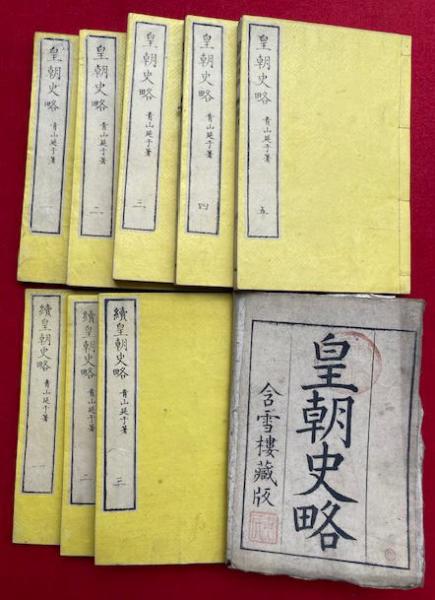 皇朝史略
青山延于著
一
皇朝史略
青山延于著
二
皇朝史略
青山延于著
三
皇朝史略
青山延于著
四
皇朝史略
青山延于著
五
續皇朝史略
青山延于著
一
續皇朝史略
青山延于著
二
續皇朝史略
青山延于著
三
皇朝史略
含雪樓藏版